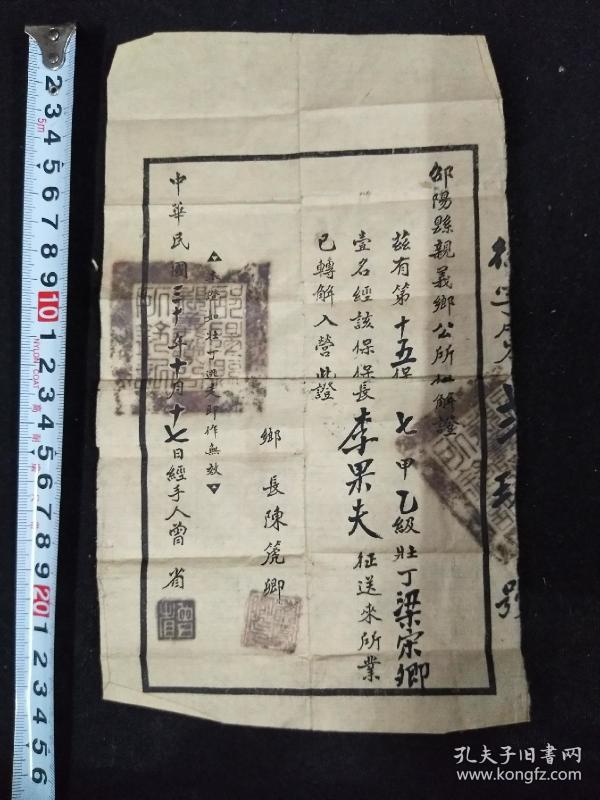 邵陽縣親義鄉公所征解證
茲有第十五保七甲乙級壯丁梁宗卿
壹名經該保保長李果夫征送來所業
已轉解入營此證
鄉長陳箎卿
本證如壯丁逃走即作無效
中華民國三十年十月十七日經手人曾省
號
2 3 4 5 6 7 8 9 10 1 2 3 4 5 6 7 8 9 20 1 2 3 4 5 6
5m
NYLON COAT
孔夫子旧书网
www.kongfz.com